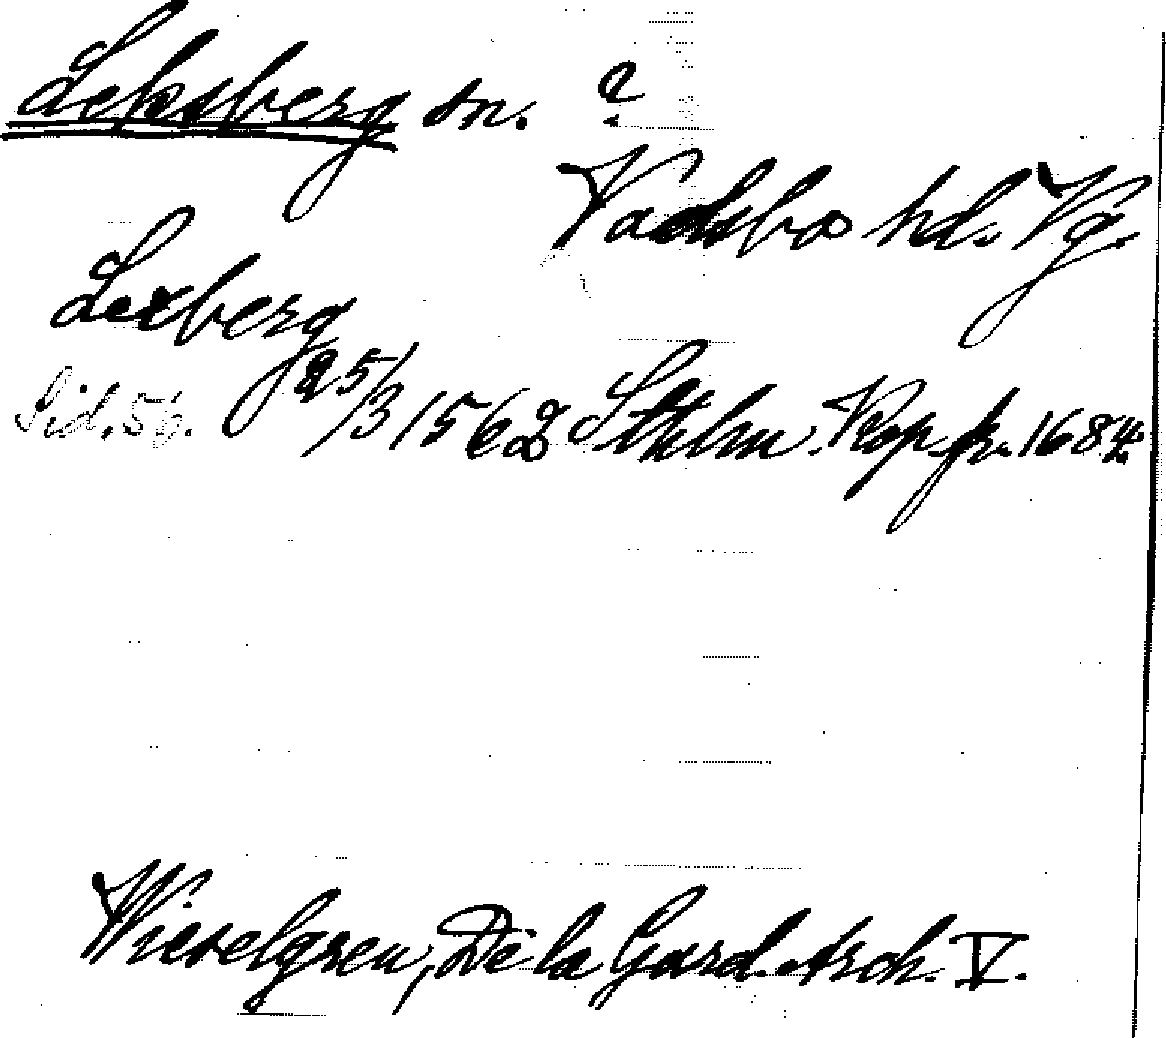 Leksberg sn. ?
Vadsbo hd. Vg.
Lexberg
Sid. 56. 25/3 1562 Sthlm. Kop. fr. 1684.
Wieselgren, De la Gard. Arch. V.